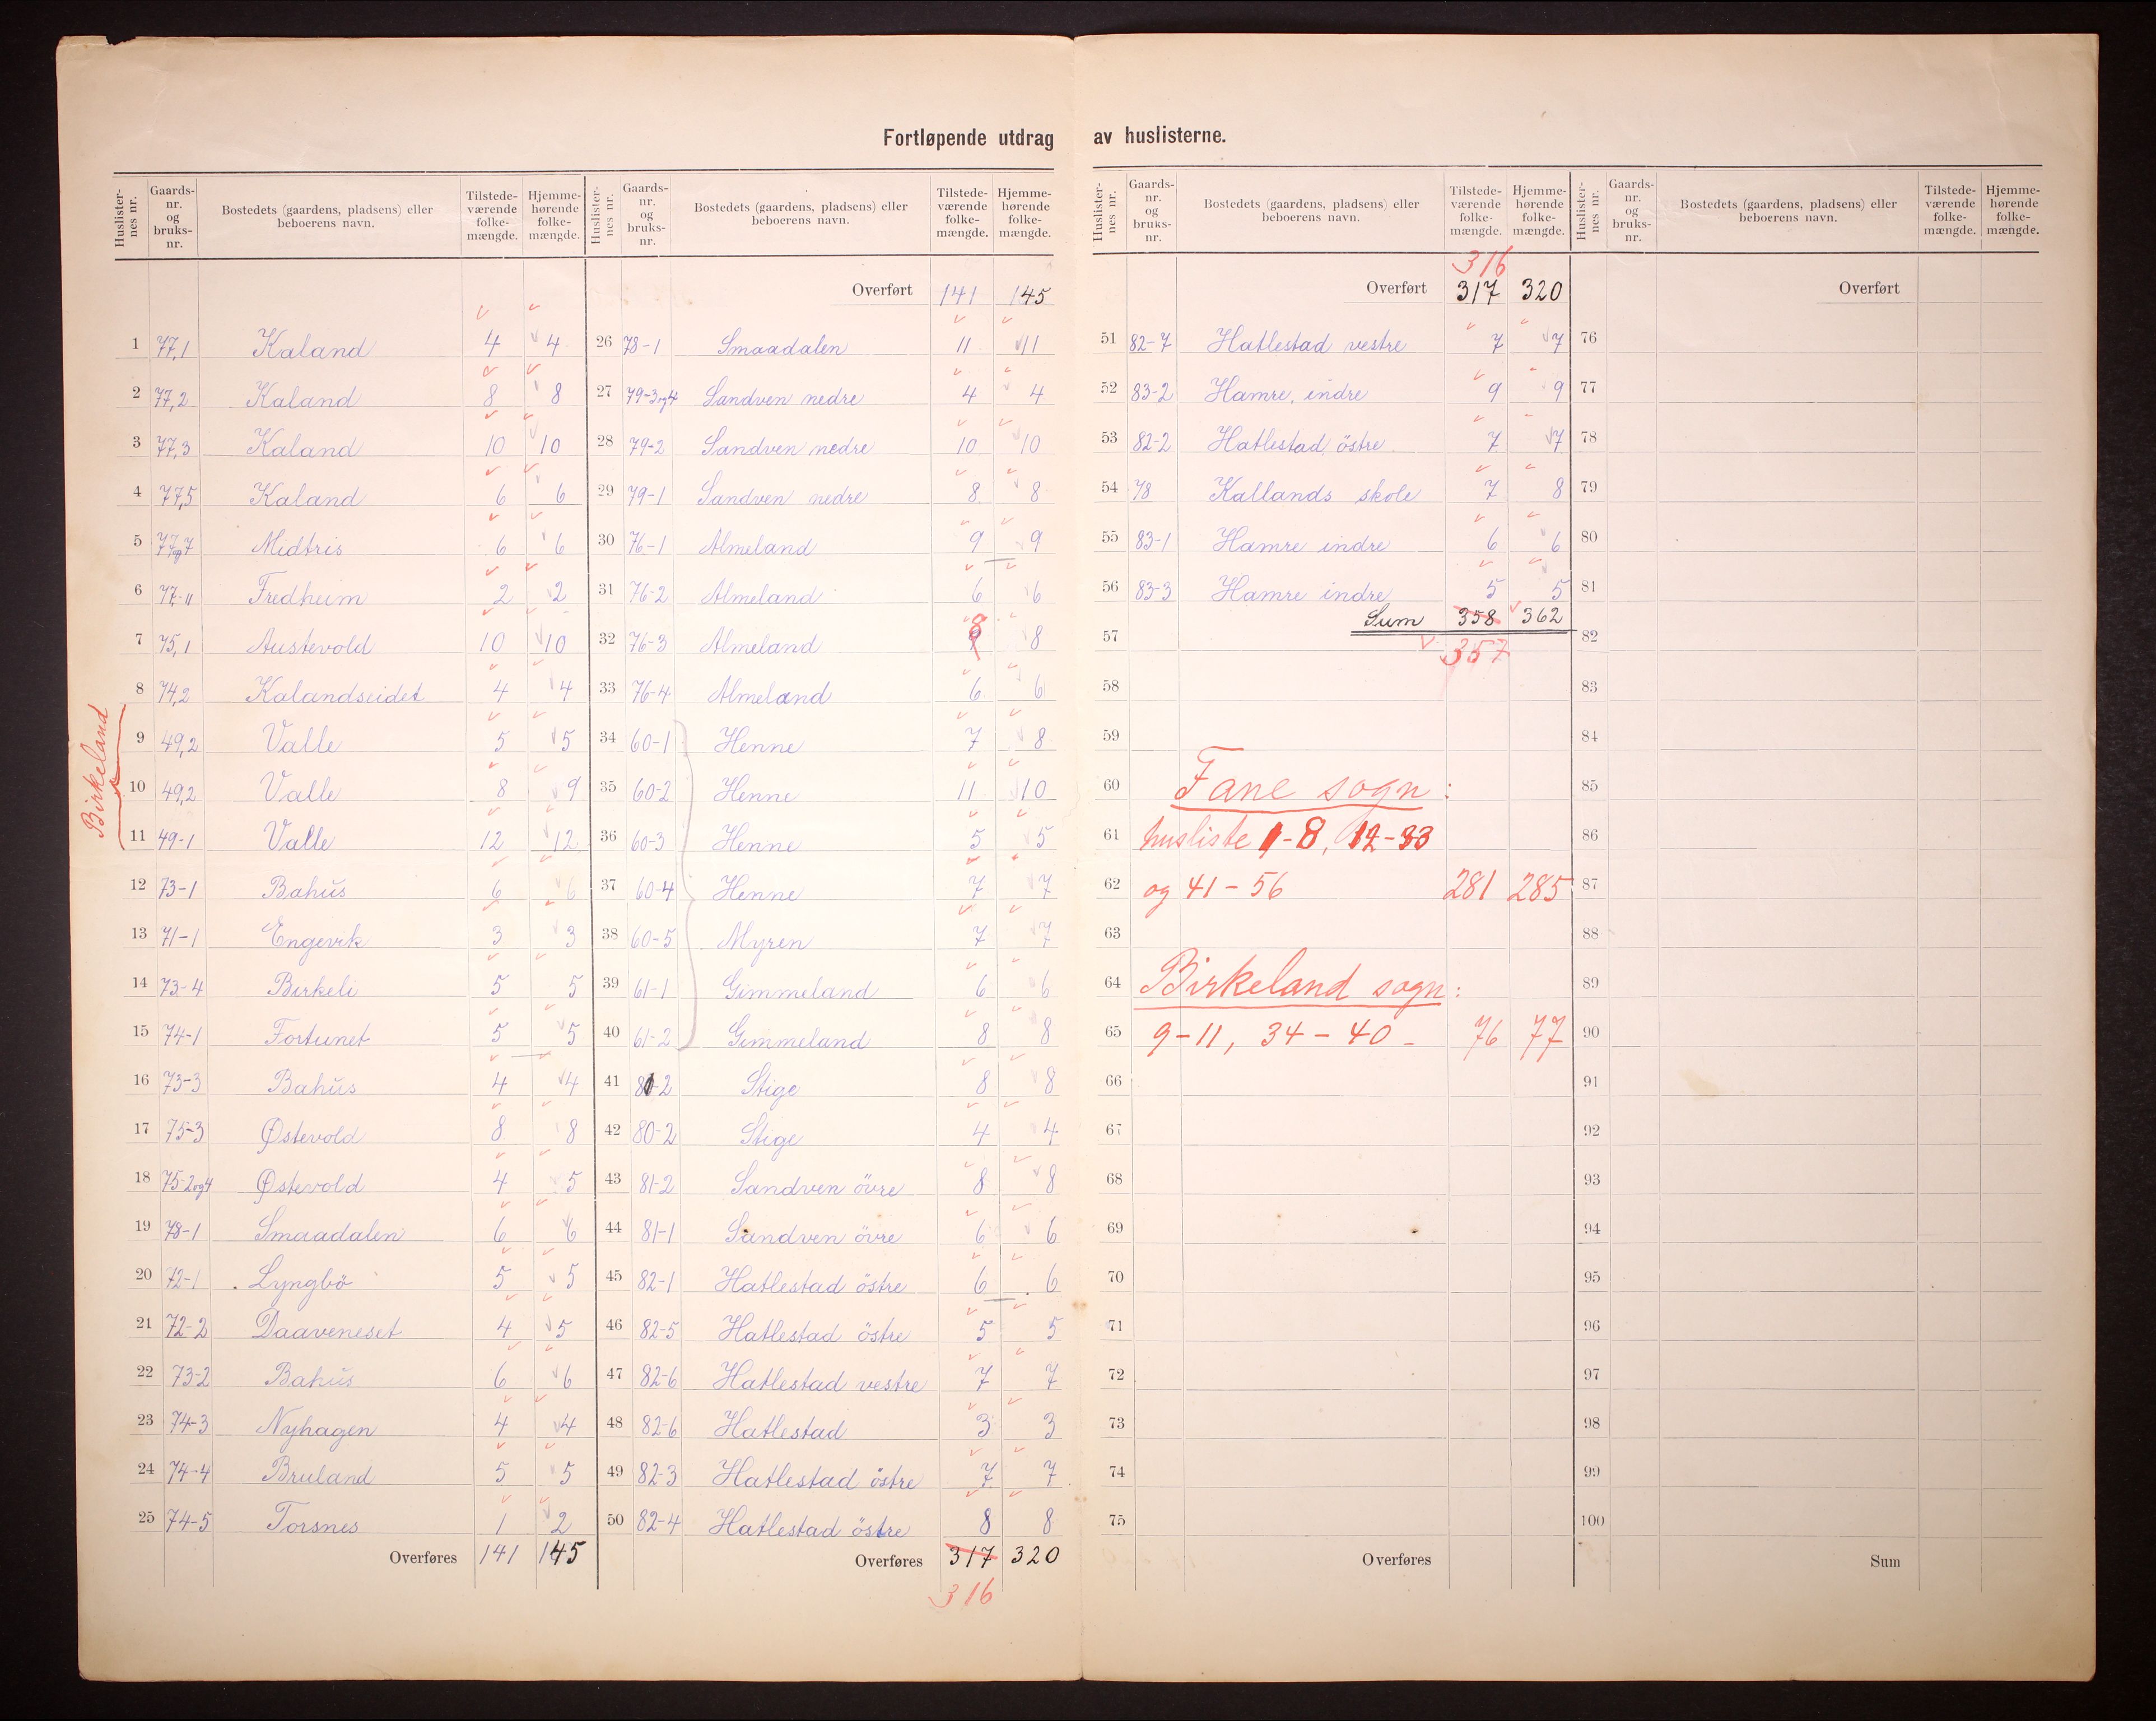 Fortløpende utdrag av huslisterne.
Huslister-nes nr. Gaards-nr. og bruks-nr. Bostedets (gaardens, pladsens) eller beboerens navn. Tilstede-værende folke-mængde. Hjemme-hørende folke-mængde.
1 77,1 Kaland 4 4
2 77,2 Kaland 8 8
3 77,3 Kaland 10 10
4 77,5 Kaland 6 6
5 77 og 7 Midtris 6 6
6 77-11 Fredheim 2 2
7 75,1 Austevold 10 10
8 74,2 Kalandseidet 4 4
Birkeland
9 49,2 Valle 5 5
10 49,2 Valle 8 9
11 49-1 Valle 12 12
12 73-1 Bahüs 6 6
13 71-1 Engevik 3 3
14 73-4 Birkeli 5 5
15 74-1 Fortunet 5 5
16 73-3 Bahüs 4 4
17 75-3 Østevold 8 8
18 75-2og4 Østevold 4 5
19 78-1 Smaadalen 6 6
20 72-1 Lyngbö 5 5
21 72-2 Daaveneset 4 5
22 73-2 Bahüs 6 6
23 74-3 Nyhagen 4 4
24 74-4 Bruland 5 5
25 74-5 Torsnes 1 2
Overføres 141 145
Huslister-nes nr. Gaards-nr. og bruks-nr. Bostedets (gaardens, pladsens) eller beboerens navn. Tilstede-værende folke-mængde. Hjemme-hørende folke-mængde.
Overført 141 145
26 78-1 Smaadalen 11 11
27 79-3og4 Sandven nedre 4 4
28 79-2 Sandven nedre 10 10
29 79-1 Sandven nedre 8 8
30 76-1 Almeland 9 9
31 76-2 Almeland 6 6
32 76-3 Almeland 8 8
33 76-4 Almeland 6 6
34 60-1 Henne 7 8
35 60-2 Henne 11 10
36 60-3 Henne 5 5
37 60-4 Henne 7 7
38 60-5 Myren 7 7
39 61-1 Gimmeland 6 6
40 61-2 Gimmeland 8 8
41 81-2 Stige 8 8
42 80-2 Stige 4 4
43 81-2 Sandven övre 8 8
44 81-1 Sandven övre 6 6
45 82-1 Hatlestad östre 6 6
46 82-5 Hatlestad östre 5 5
47 82-6 Hatlestad vestre 7 7
48 82-6 Hatlestad 3 3
49 82-3 Hatlestad östre 7 7
50 82-4 Hatlestad östre 8 8
Overføres 317 320
316
Huslister-nes nr. Gaards-nr. og bruks-nr. Bostedets (gaardens, pladsens) eller beboerens navn. Tilstede-værende folke-mængde. Hjemme-hørende folke-mængde.
316
Overført 317 320
51 82-7 Hatlestad vestre 7 7
52 83-2 Hamre, indre 9 9
53 82-2 Hatlestad östre 7 7
54 78 Kallands skole 7 8
55 83-1 Hamre indre 6 6
56 83-3 Hamre indre 5 5
Sum 358 362
57 357
58
59
60 Fane sogn:
61 husliste 1-8, 12-33
62 og 41-56 281 285
63
64 Birkeland sogn:
65 9-11, 34-40 - 76 77
66
67
68
69
70
71
72
73
74
75
Overføres
Huslister-nes nr. Gaards-nr. og bruks-nr. Bostedets (gaardens, pladsens) eller beboerens navn. Tilstede-værende folke-mængde. Hjemme-hørende folke-mængde.
Overført
76
77
78
79
80
81
82
83
84
85
86
87
88
89
90
91
92
93
94
95
96
97
98
99
100
Sum